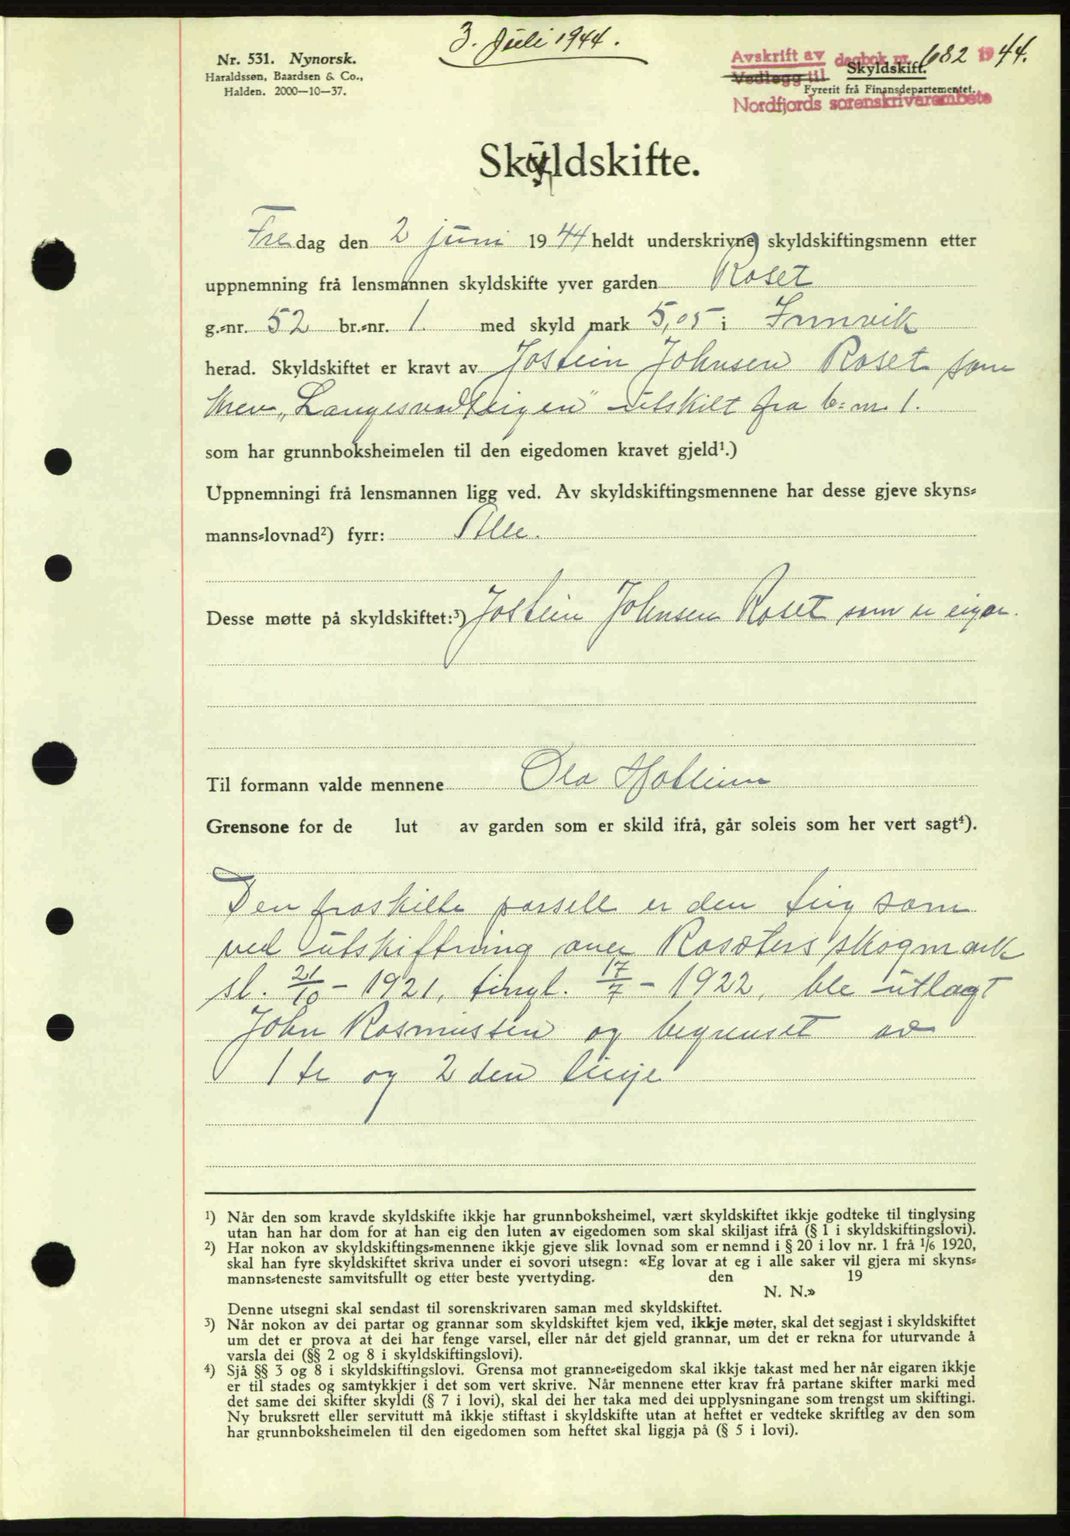 3. Juli 1944.
Nr. 531. Nynorsk.
Haraldssøn, Baardsen & Co.,
Halden. 2000—10—37.
Avskrift av dagbok nr. 682 1944.
Vedlegg til Skyldskift.
Fyrerit frå Finansdepartementet.
Nordfjords sorenskrivarembete
Skyldskifte.
Fredag den 2 juni 1944 heldt underskrivne skyldskiftingsmenn etter
uppnemning frå lensmannen skyldskifte yver garden Roset
g.-nr. 52 br.-nr. 1. med skyld mark 5,05 i Innvik
herad. Skyldskiftet er kravt av Jostein Johnsen Roset som
krev „ " utskilt fra b: nr. 1.
som har grunnboksheimelen til den eigedomen kravet gjeld¹.)
Uppnemningi frå lensmannen ligg ved. Av skyldskiftingsmennene har desse gjeve skyns-
manns-lovnad²) fyrr: Alle.
Desse møtte på skyldskiftet:³) Jostein Johnsen Roset som er eigar.
Til formann valde mennene Ola
Grensone for de lut av garden som er skild ifrå, går soleis som her vert sagt⁴).
Den fraskilte parsell er den teig som
ved utskiftning over Rosæters skogmark
sl. 21/10 - 1921, tingl. 17/7 - 1922, ble utlagt
John Rasmussen og begrenset av
1 te og 2 den linje
¹) Når den som kravde skyldskifte ikkje har grunnboksheimel, vært skyldskiftet ikkje godteke til tinglysing
utan han har dom for at han eig den luten av eigedomen som skal skiljast ifrå (§ 1 i skyldskiftingslovi).
²) Har nokon av skyldskiftings-mennene ikkje gjeve slik lovnad som er nemnd i § 20 i lov nr. 1 frå 1/6 1920,
skal han fyre skyldskiftet skriva under ei sovori utsegn: «Eg lovar at eg i alle saker vil gjera mi skyns-
manns-teneste samvitsfullt og etter beste yvertyding. den 19
N. N.»
Denne utsegni skal sendast til sorenskrivaren saman med skyldskiftet.
³) Når nokon av dei partar og grannar som skyldskiftet kjem ved, ikkje møter, skal det segjast i skyldskiftet
um det er prova at dei har fenge varsel, eller når det gjeld grannar, um det er rekna for uturvande å
varsla dei (§§ 2 og 8 i skyldskiftingslovi).
⁴) Sjå §§ 3 og 8 i skyldskiftingslovi. Grensa mot granne-eigedom skal ikkje takast med her når eigaren ikkje
er til stades og samtykkjer i det som vert skrive. Når mennene etter krav frå partane skifter marki med
det same dei skifter skyldi (§ 7 i lovi), skal dei her taka med dei upplysningane som trengst um skiftingi.
Ny bruksrett eller servitutt må ikkje stiftast i skyldskifte utan at heftet er vedteke skriftleg av den som
har grunnboksheimelen til den eigedomen som heftet skal liggja på (§ 5 i lovi).